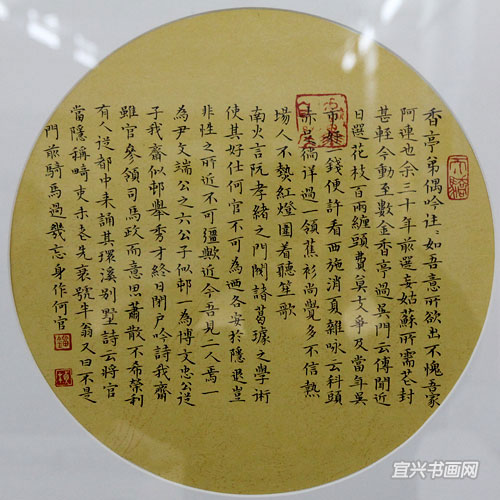 香亭弟偶吟往往如吾意所欲出不愧吾家
阿連也余三十年前選妾姑蘇所需花封
甚輕今動至數金香亭過吳門云傳聞近
日選花枝百兩纏頭費莫支爭及當年吳
市 錢便許看西施消夏雜咏云科頭
徜徉過一領蕉衫尚覺多不信熱
場人不熱紅燈圍着聽笙歌
南史言阮孝緒之門闕諸葛璩之學術
使其好仕何官不可為迺各安於隱退豈
非性之所近不可彊歟近今吾見二人焉一
為尹文端公之六公子似邨一為博文忠公從
子我齋似邨舉秀才終日閉戶吟詩我齋
雖官參領司馬政而意思蕭散不希榮利
有人從都中來誦其環溪別墅詩云將官
當隱稱畸吏未老先衰號半翁又曰不是
門前騎馬過幾忘身作何官
宜兴书画网